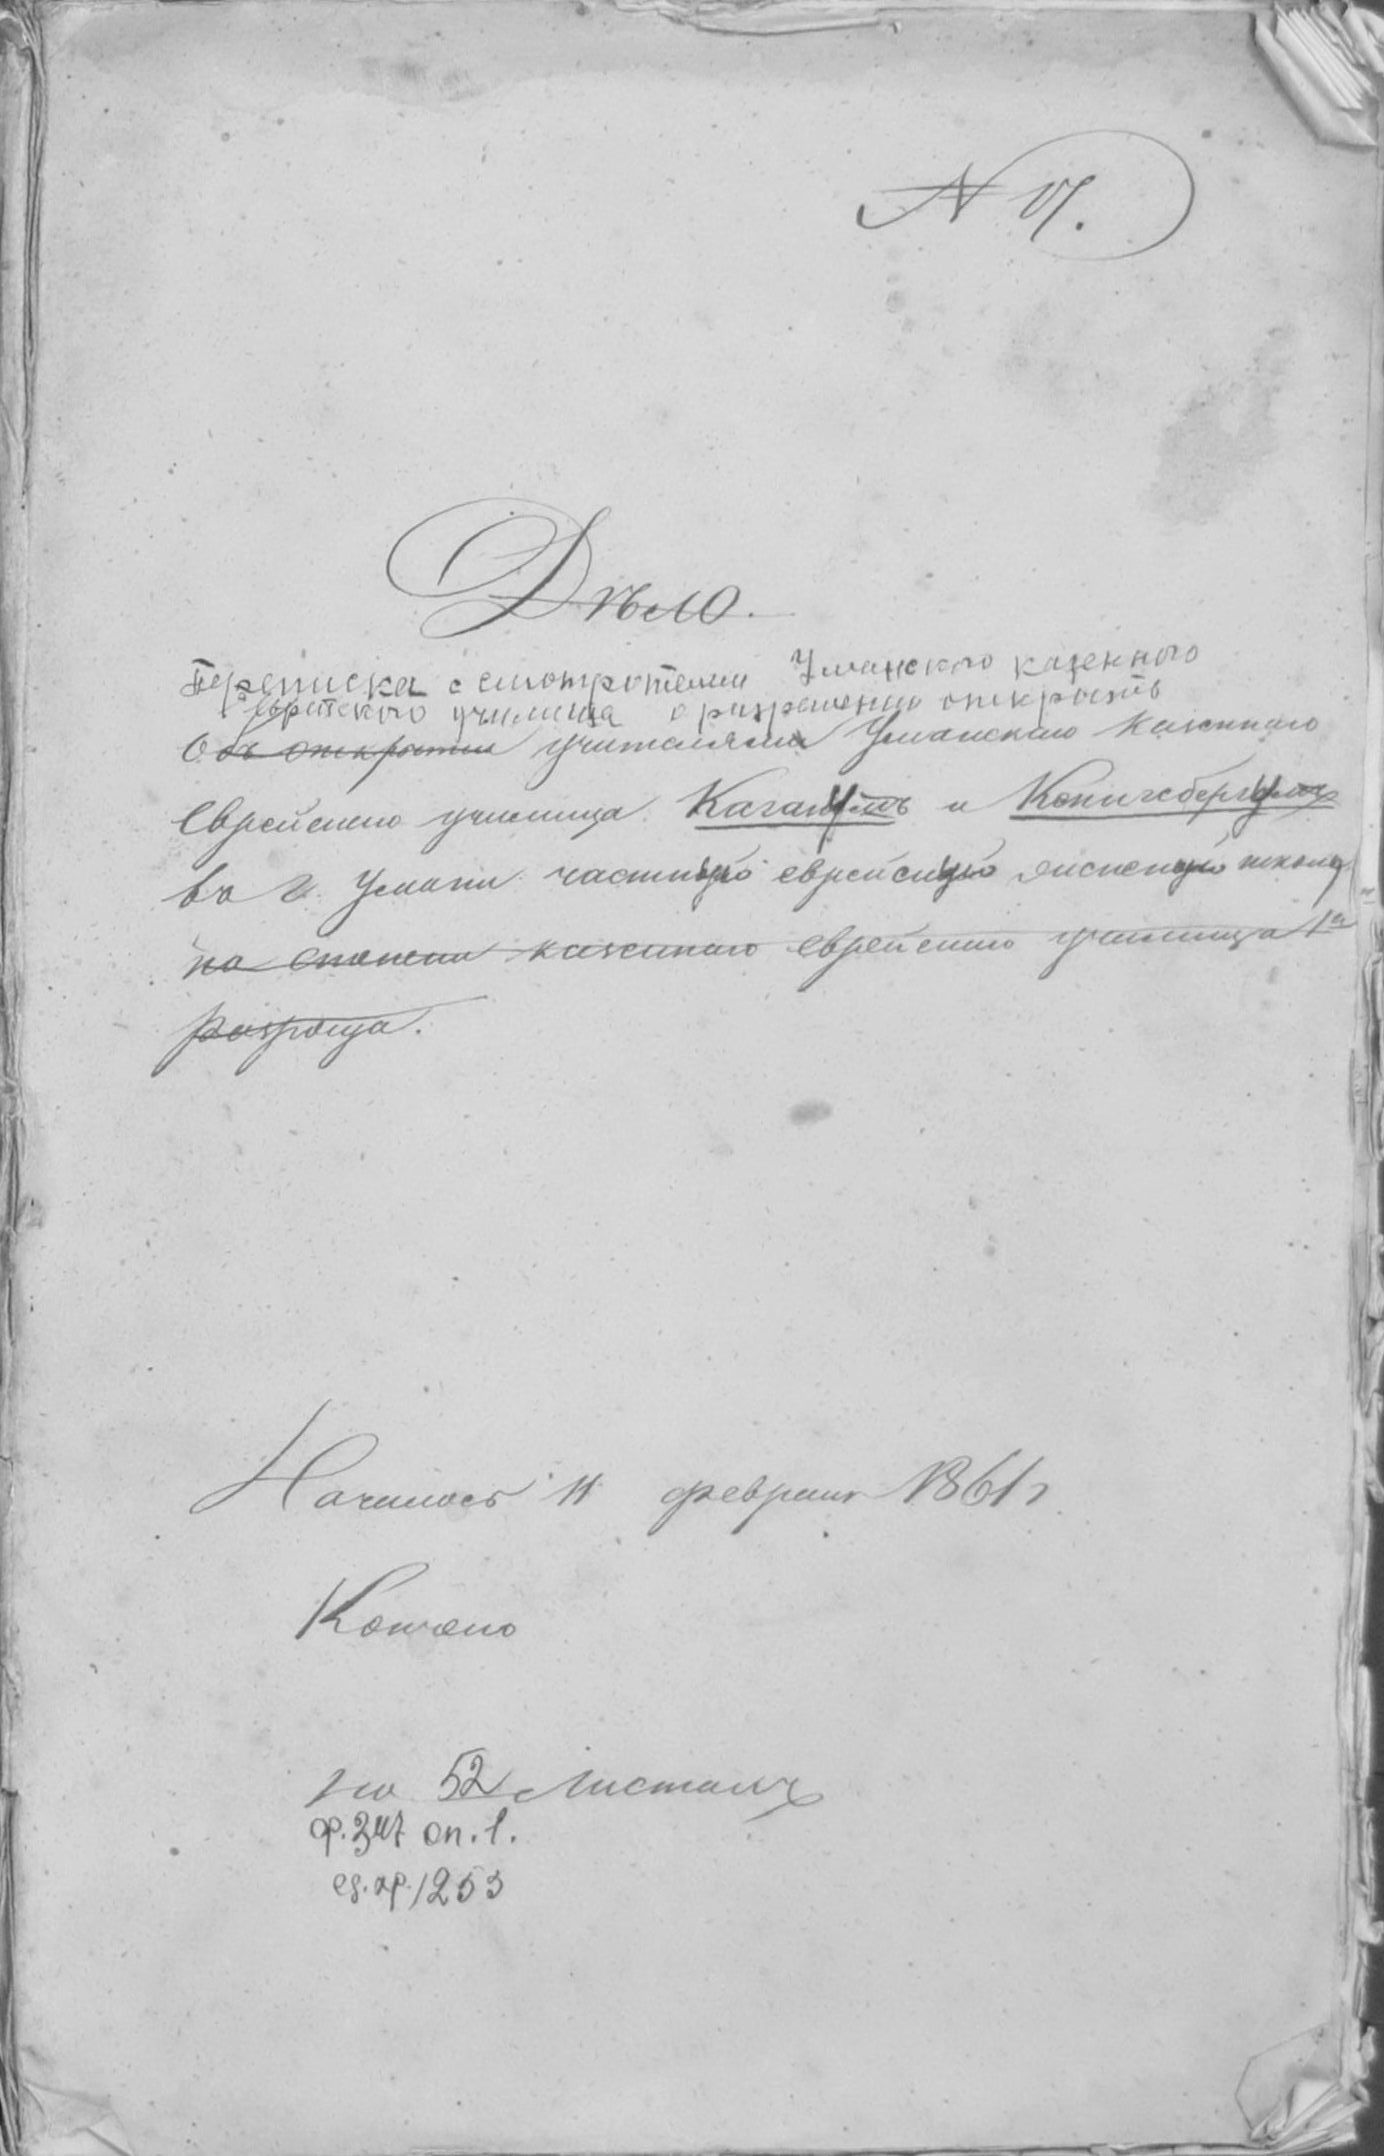 N
Дѣло.
Переписка с смотрителем Уманского казенного
еврейского училища о разрешении открыть
Объ открытии учителями Уманскаго Казеннаго
Еврейскаго училища Каган и Кенигсберг
въ г. Умани частную еврейскую женскую школу
на степени казеннаго еврейскаго училища 1го
разряда.
Началось 11 февраля 1861 г.
Кончено
на 52 листахъ
ф. 347 оп. 1.
ед. хр. 1253